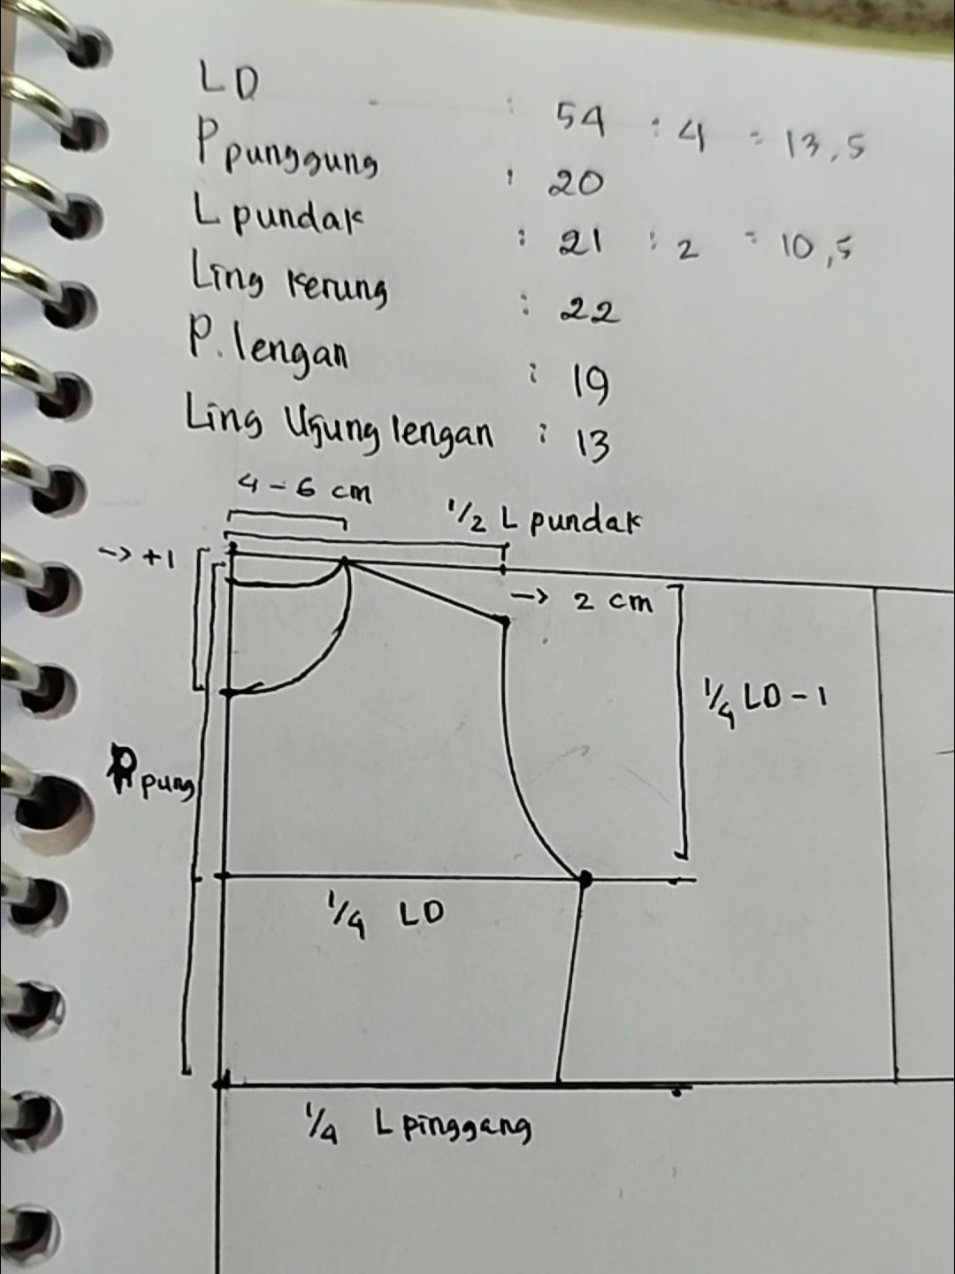 LD : 54 : 4 = 13,5
P punggung : 20
L pundak : 21 : 2 = 10,5
Ling kerung : 22
P. lengan : 19
Ling Ujung lengan : 13
4 - 6 cm
1/2 L pundak
-> +1
-> 2 cm
1/4 LD - 1
P pung
1/4 LD
1/4 L pinggang